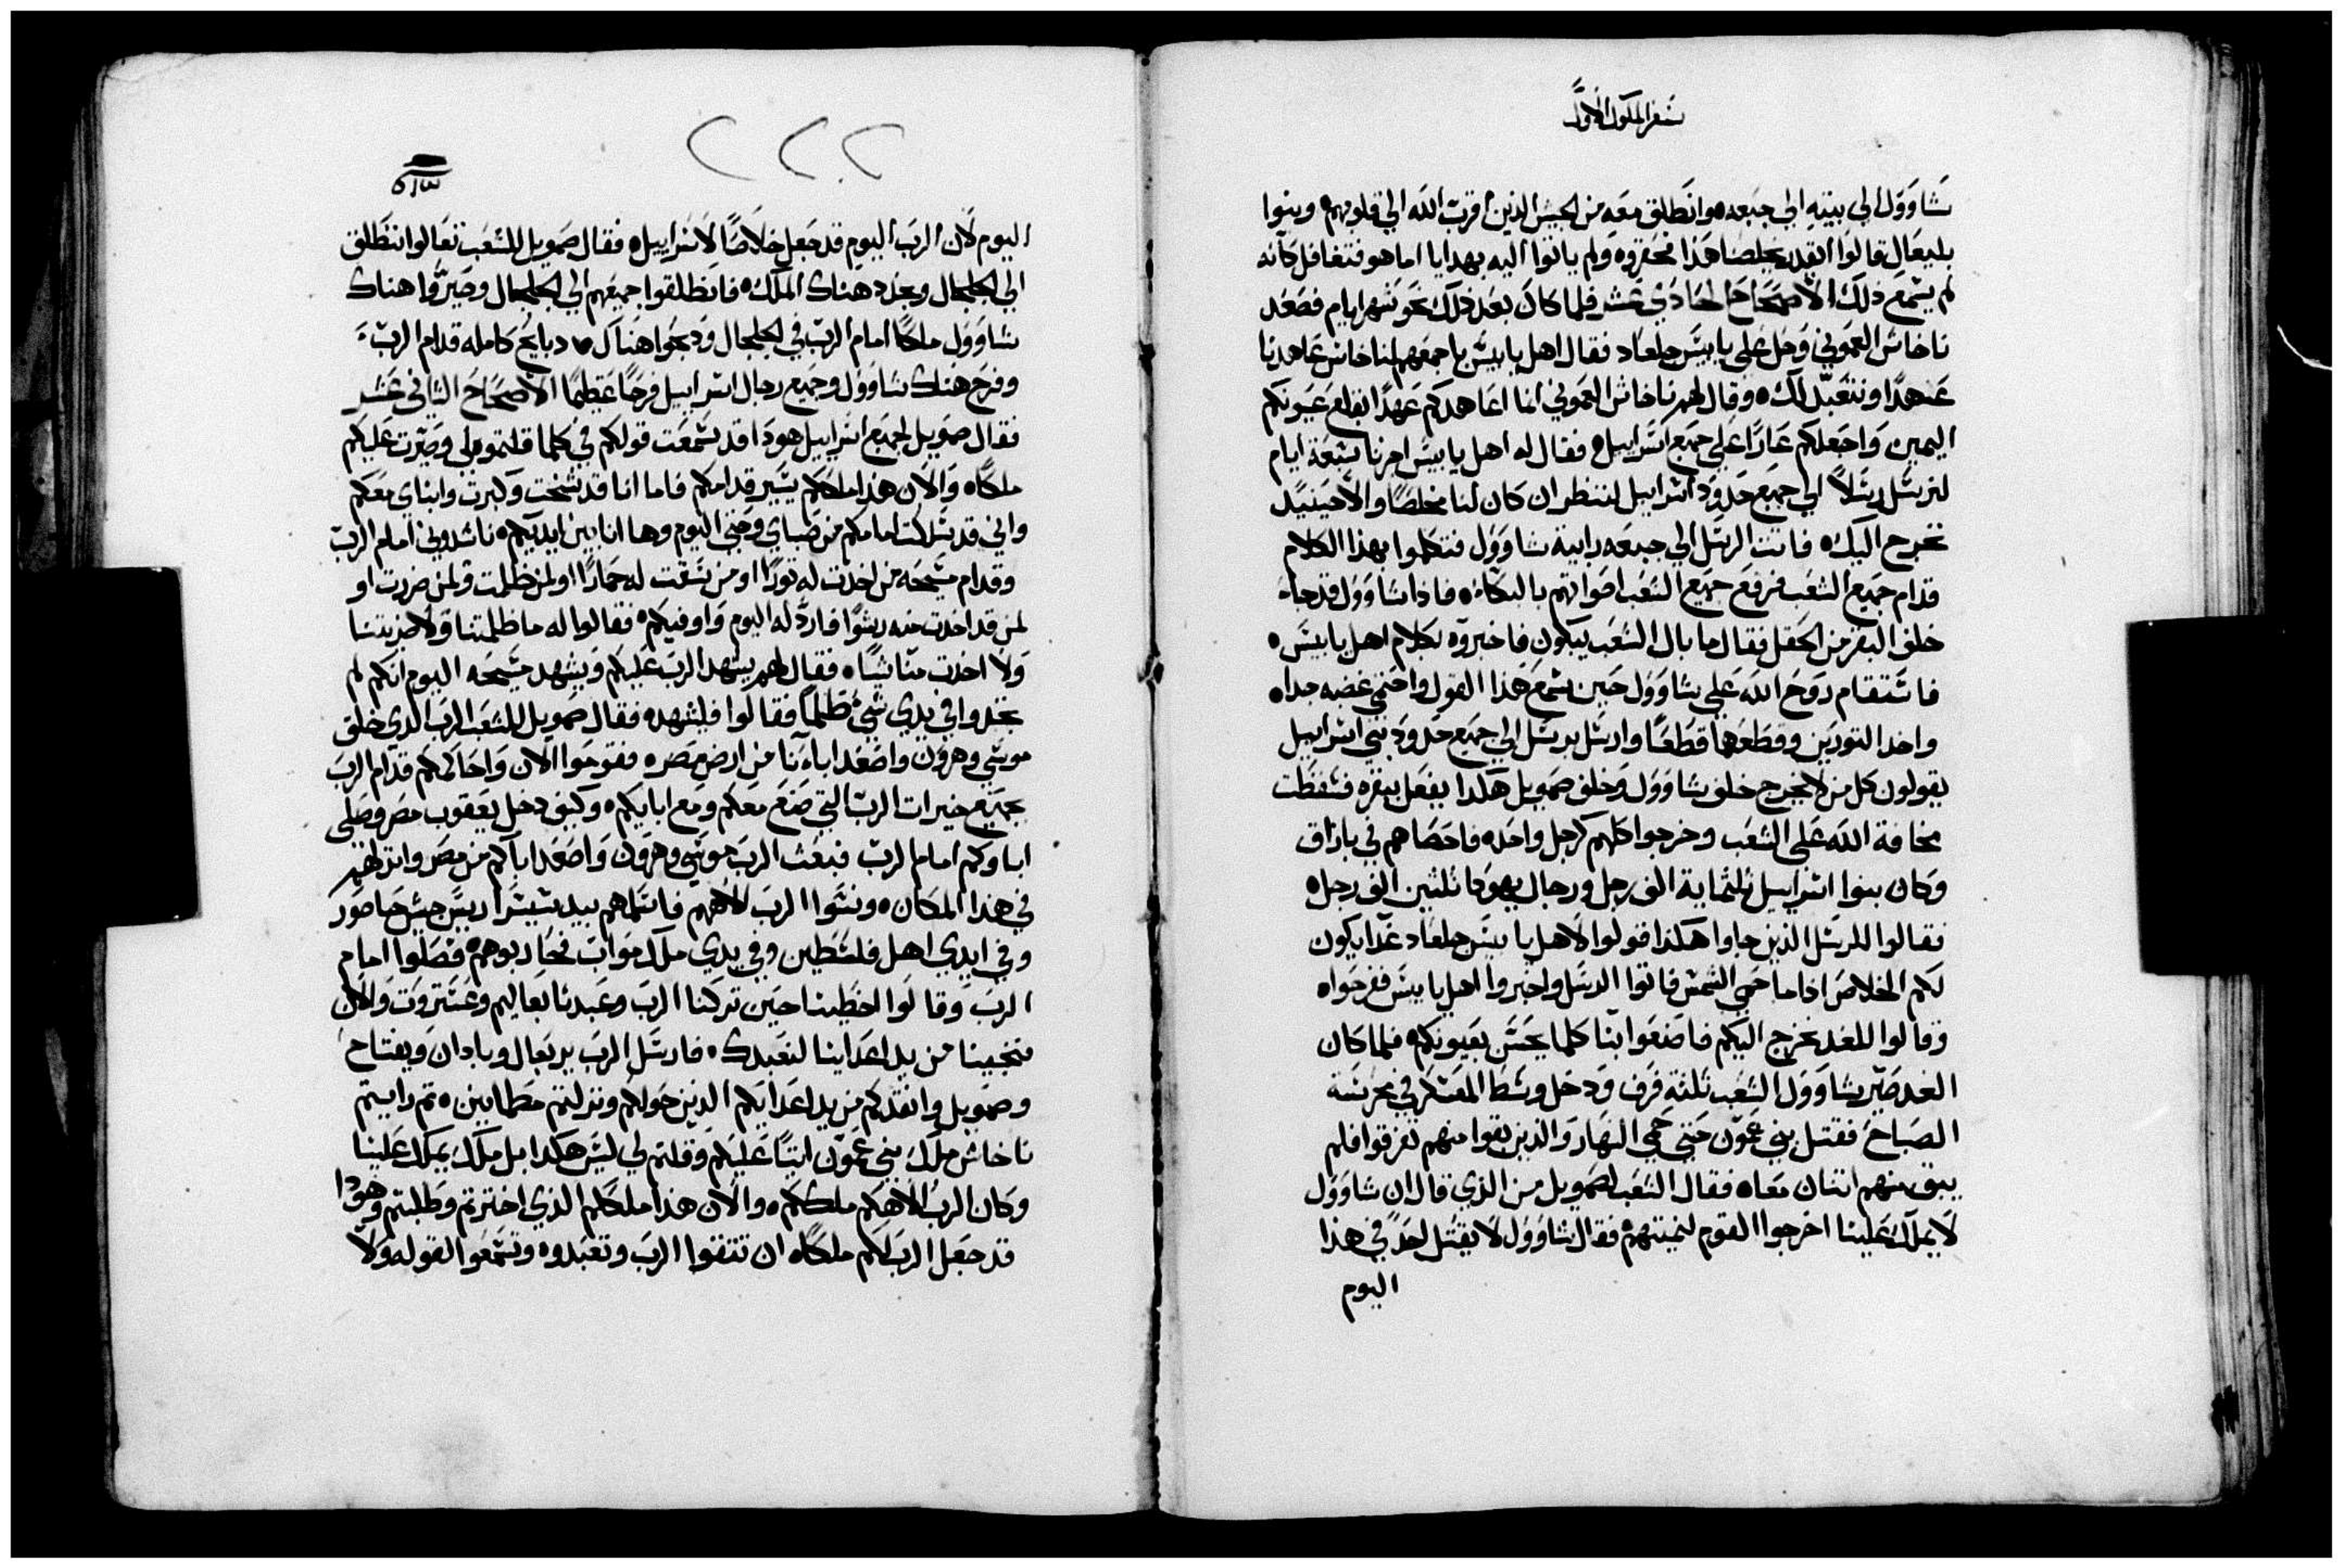 سفر الملوك الاول
شاوول الي بيته الي جبعه وانطلق معه من الجيش الذين اقرب الله الي قلوبهم وبنوا
بليعال قالوا اتقدر يخلصنا هذا فحقروه ولم ياتوا اليه بهدايا اما هو فتغافل كانه
لم يسمع ذلك الاصحاح الحادي عشر فلما كان بعد ذلك نحو شهر ايام فصعد
ناخاش العموني وحل علي يابيس جلعاد فقال اهل يابيس باجمعهم لناخاش عاهدنا
عهدًا ونتعبد لك وقال لهم ناخاش العموني انا اعاهدكم عهدًا بقلع عيونكم
اليمين واجعلكم عارًا علي جميع اسراييل فقال له اهل يابيس اخرنا سبعة ايام
لنرسل رسلاً الي جميع حدود اسراييل لننظر ان كان لنا مخلصًا والا حينيد
نخرج اليك فاتت الرسل الي جبعه رابية شاوول فتكلموا بهذا الكلام
قدام جميع الشعب فرفع جميع الشعب اصواتهم بالبكاء فاذا شاوول قد جا
خلف البقر من الحقل فقال ما بال الشعب يبكون فاخبروه بكلام اهل يابيس
فاستقام روح الله علي شاوول حين سمع هذا القول واحتمي غضبه جدا
واخد التورين وقطعها قطعًا وارسل برسل الي جميع حدود بني اسراييل
يقولون كل من لا يخرج خلف شاوول وخلف صمويل هكدا يفعل ببقره فسقطت
مخافة الله علي الشعب وخرجوا كلهم كرجل واحد فاحصاهم في بازاق
وكان بنوا اسراييل ثلثماية الف رجل ورجال يهودا ثلثين الف رجل
فقالوا للرسل الذين جاوا هكذا قولوا لاهل يابيس جلعاد غدًا يكون
لكم الخلاص اذا ما حمي الشمس فاتوا الرسل واخبروا اهل يابيس ففرحوا
وقالوا للغد نخرج اليكم فاصنعوا بنا كلما يحسن بعيونكم فلما كان
الغد صير شاوول الشعب ثلثه فرق ودخل وسط المعسكر في محرسة
الصباح فقتل بني عمون حتي حمي النهار والذين بقوا منهم تفرقوا فلم
يبق منهم اتنان معا فقال الشعب لصمويل من الذي قال ان شاوول
لا يملك علينا اخرجوا القوم لنميتهم فقال شاوول لا يقتل احد في هذا
اليوم
٢٢٢
٥١٣
اليوم لان الرب اليوم قد جعل خلاصًا لاسراييل فقال صمويل للشعب تعالوا ننطلق
الي الجلجال ونجدد هناك الملك فانطلقوا جميعهم الي الجلجال وصيروا هناك
شاوول ملكًا امام الرب في الجلجال ودبحوا هناك دبايح كامله قدام الرب
وفرح هناك شاوول وجميع رجال اسراييل فرحًا عظيمًا الاصحاح الثاني عشر
فقال صمويل لجميع اسراييل هودا قد سمعت قولكم في كلما قلتموه لي وصيرت عليكم
ملكًا والان هذا ملككم يسير قدامكم فاما انا قد شخت وكبرت وابناي معكم
واني قد سلكت امامكم من صباي وحتي اليوم وها انا بين ايديكم ناشدوني امام الرب
وقدام مسيحه من اخدت له تورًا او من سقت له حمارًا او لمن ظلمت ولمن ضررت او
لمن قد اخدت منه رشوًا فارد له اليوم واوفيكم فقالوا له ما ظلمتنا ولا ضررتنا
ولا اخدت منا شيًا فقال لهم يشهد الرب عليكم ويشهد مسيحه اليوم انكم لم
تجدوا في يدي شي ظلمًا فقالوا فليشهد فقال صمويل للشعب الرب الدي خلق
موسي وهرون واصعد اباءنا من ارض مصر فقوموا الان واحاكمكم قدام الرب
بجميع خيرات الرب التي صنع معكم ومع ابايكم وكيف دخل يعقوب مصر وصلي
اباوكم امام الرب فبعث الرب موسي وهرون واصعد اباكم من مصر وانزلهم
في هذا المكان ونسوا الرب الاههم فاسلمهم بيد سيسرا ريس جيش حاصور
وفي ايدي اهل فلسطين وفي يدي ملك مواب فحاربوهم فصلوا امام
الرب وقالوا اخطينا حين تركنا الرب وعبدنا بعاليم وعستروت والان
فنجينا من يد اعداينا لنعبدك فارسل الرب يربعال وبادان ويفتاح
وصمويل وانقدكم من يد اعدايكم الدين حولكم ونزلتم مطمانين تم رايتم
ناخاش ملك بني عمون اتيًا عليكم وقلتم لي ليس هكدا بل ملك يملك علينا
وكان الرب الاهكم ملككم والان هذا ملككم الذي اخترتم وطلبتم وهودا
قد جعل الرب لكم ملكًا ان تتقوا الرب وتعبدوه وتسمعوا لقوله ولا